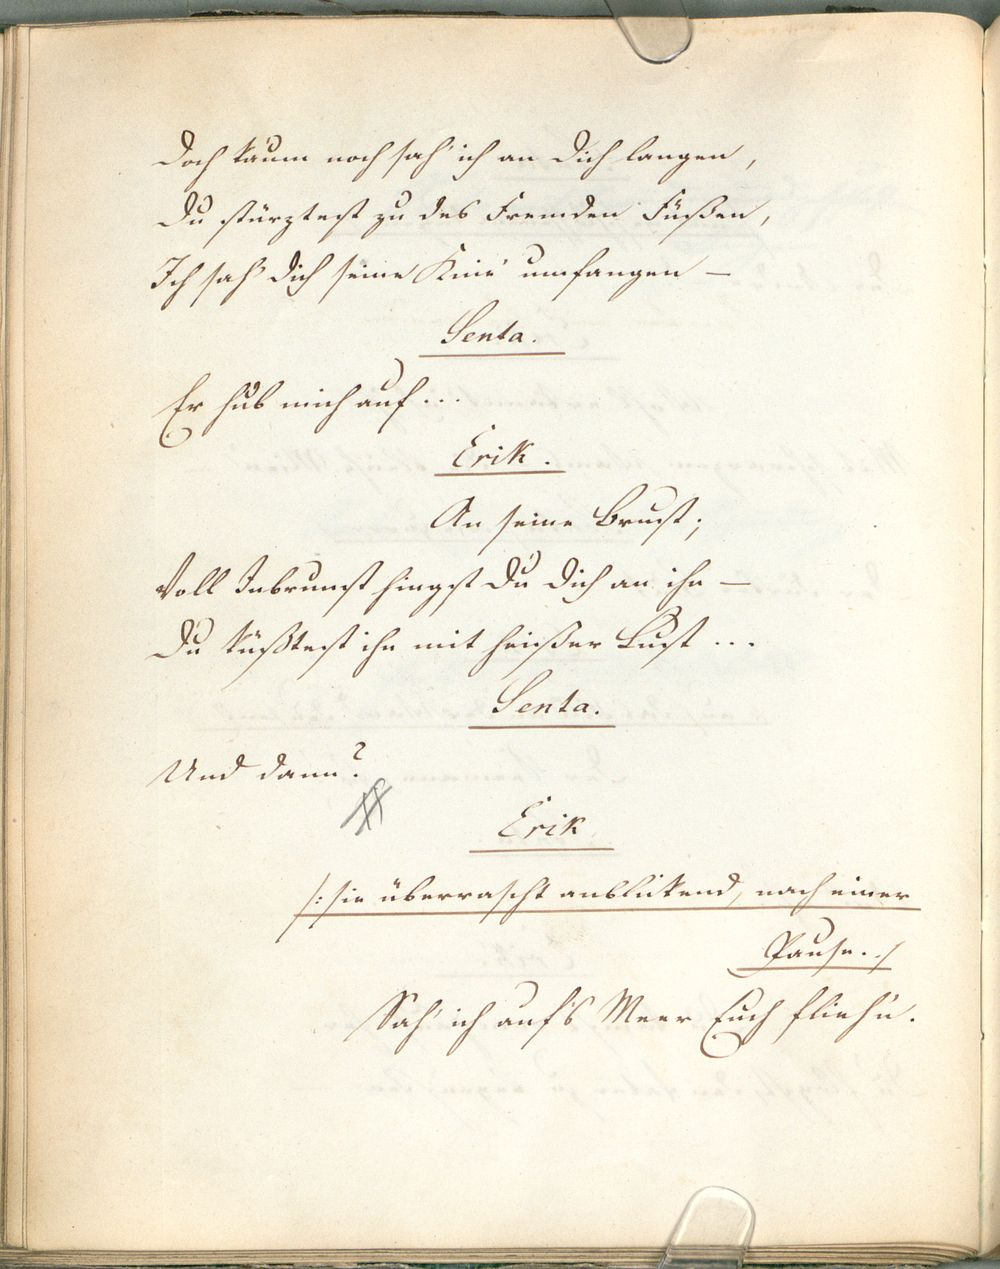 Doch kaum noch sah' ich an dich langen,
Du stürztest zu des Fremden Füßen,
Ich sah' dich seine Knie' umfangen –
Senta.
Er hub mich auf...
Erik.
An seine Brust;
Voll Inbrunst hingst du dich an ihn –
Du küßtest ihn mit heißer Lust...
Senta.
Und dann?
Erik
/: sie überrascht anblickend, nach einer
Pause. :/
Sah' ich auf's Meer Euch flieh'n.